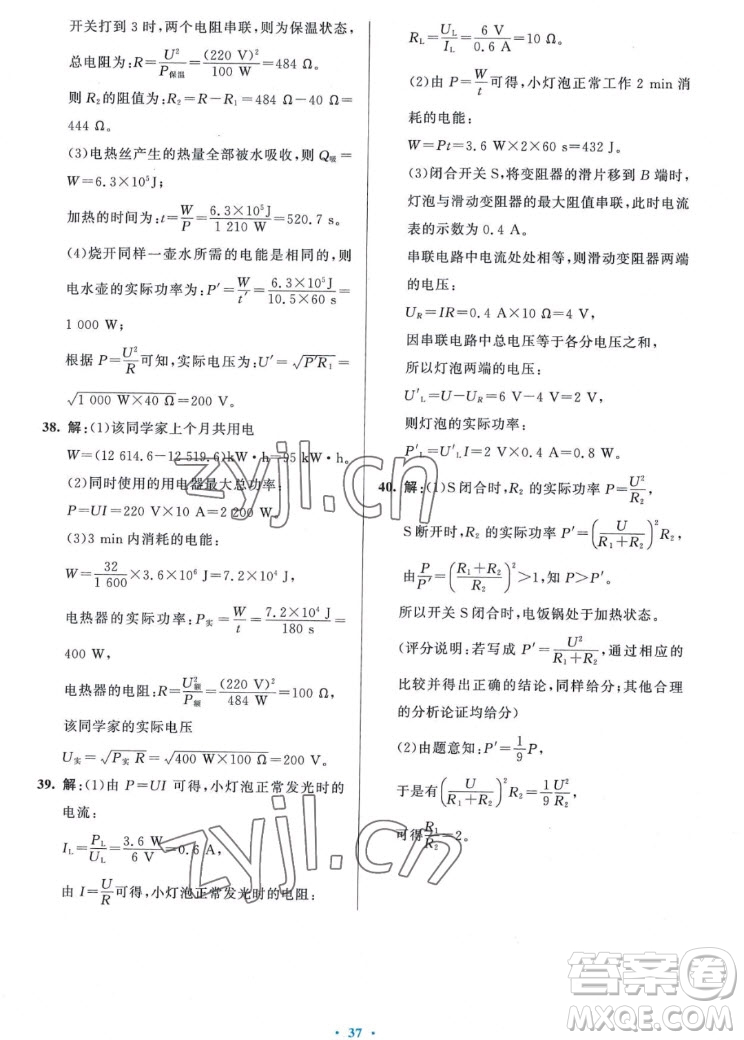 开关打到 3 时，两个电阻串联，则为保温状态，
总电阻为：R=U²/P保温=(220 V)²/100 W=484 Ω，
则 R₂ 的阻值为：R₂=R－R₁=484 Ω－40 Ω=
444 Ω；
(3)电热丝产生的热量全部被水吸收，则 Q吸=
W=6.3×10⁵J，
加热的时间为：t=W/P=6.3×10⁵J/1 210 W=520.7 s；
(4)烧开同样一壶水所需的电能是相同的，则
电水壶的实际功率为：P′=W/t′=6.3×10⁵J/10.5×60 s=
1 000 W；
根据 P=U²/R可知，实际电压为：U′=√P′R₁=
√1 000 W×40 Ω=200 V。
38. 解：(1)该同学家上个月共用电
W=(12 614.6－12 519.6)kW·h=95 kW·h。
(2)同时使用的用电器最大总功率：
P=UI=220 V×10 A=2 200 W。
(3)3 min 内消耗的电能：
W=32/1 600×3.6×10⁶ J=7.2×10⁴ J，
电热器的实际功率：P实=W/t=7.2×10⁴ J/180 s=
400 W，
电热器的电阻：R=U额²/P额=(220 V)²/484 W=100 Ω，
该同学家的实际电压
U实=√P实 R=√400 W×100 Ω=200 V。
39. 解：(1)由 P=UI 可得，小灯泡正常发光时的
电流：
I_L=P_L/U_L=3.6 W/6 V=0.6 A，
由 I=U/R可得，小灯泡正常发光时的电阻：
R_L=U_L/I_L=6 V/0.6 A=10 Ω。
(2)由 P=W/t可得，小灯泡正常工作 2 min 消
耗的电能：
W=Pt=3.6 W×2×60 s=432 J。
(3)闭合开关 S，将变阻器的滑片移到 B 端时，
灯泡与滑动变阻器的最大阻值串联，此时电流
表的示数为 0.4 A。
串联电路中电流处处相等，则滑动变阻器两端
的电压：
U_R=IR=0.4 A×10 Ω=4 V，
因串联电路中总电压等于各分电压之和，
所以灯泡两端的电压：
U′_L=U－U_R=6 V－4 V=2 V，
则灯泡的实际功率：
P′_L=U′_LI=2 V×0.4 A=0.8 W。
40. 解：(1)S 闭合时，R₂ 的实际功率 P=U²/R₂，
S 断开时，R₂ 的实际功率 P′=(U/R₁+R₂)²R₂，
由P/P′=(R₁+R₂/R₂)²>1，知 P>P′。
所以开关 S 闭合时，电饭锅处于加热状态。
(评分说明：若写成 P′=U²/R₁+R₂，通过相应的
比较并得出正确的结论，同样给分；其他合理
的分析论证均给分)
(2)由题意知：P′=1/9P，
于是有(U/R₁+R₂)²R₂=1/9 U²/R₂，
可得R₁/R₂=2。
zyjl.cn
zyjl.cn
答案卷
MXQE.COM
· 37 ·